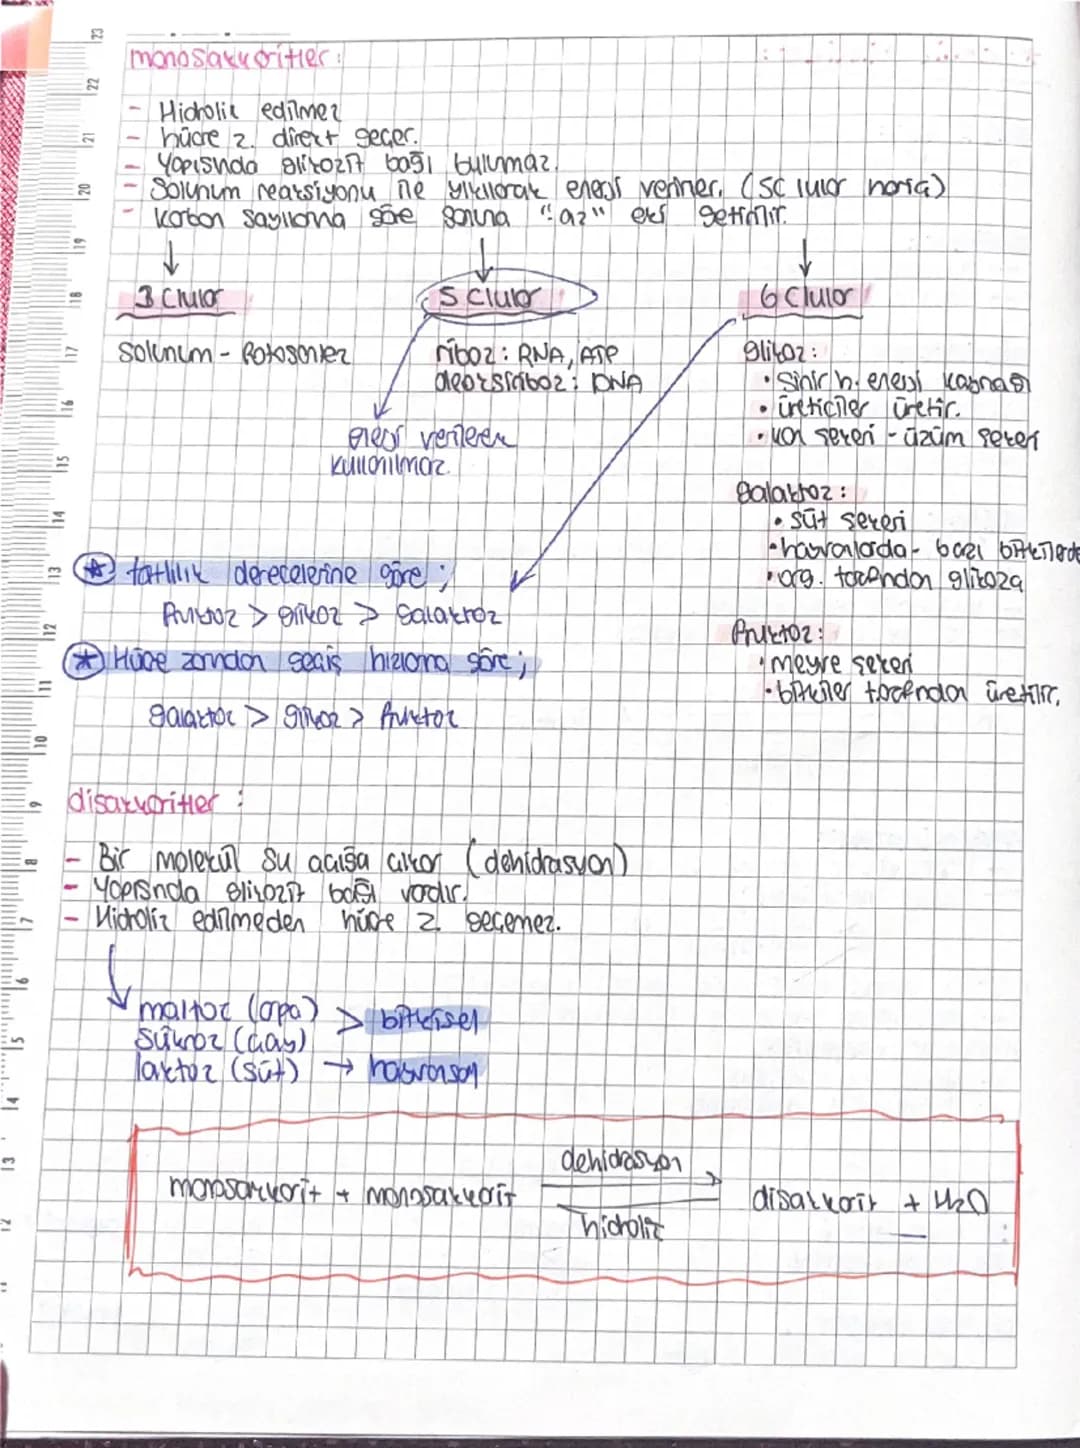 monosakkaritler:
- Hidroliz edilmez
- hücre z. direkt geçer.
- Yapısında glikozit bağı bulunmaz.
- Solunum reaksiyonu ile yıkılarak enerji verirler. (5C lular hariç)
- Karbon sayılarına göre sonuna "oz" eki getirilir.
3 C'lular
5 C'lular
6 C'lular
Solunum - fotosentez
riboz: RNA, ATP
deoksiriboz: DNA
enerji vericiler kullanılmaz.
glikoz:
• Sinir h. enerji kaynağı
• üreticiler üretir.
• kan şekeri - üzüm şekeri
galaktoz:
• süt şekeri
• hayvanlarda - bazı bitkilerde
• org. tarafından glikoza
fruktoz:
• meyve şekeri
• bitkiler tarafından üretilir.
* tatlılık derecelerine göre;
fruktoz > glikoz > galaktoz
* Hücre zarından geçiş hızlarına göre;
galaktoz > glikoz > fruktoz
disakkaritler:
- Bir molekül su açığa çıkar (dehidrasyon)
- Yapısında glikozit bağı vardır.
- Hidroliz edilmeden hücre z. geçemez.
maltoz (arpa) > bitkisel
Sükroz (çay)
laktoz (süt) → hayvansal
dehidrasyon
monosakkarit + monosakkarit
disakkarit + H2O
hidroliz